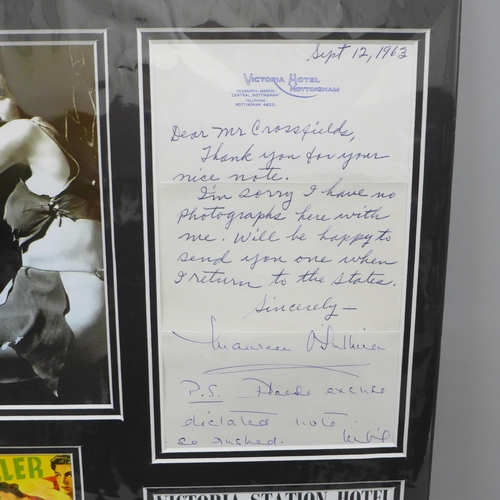 Sept 12, 1963
VICTORIA HOTEL
NOTTINGHAM
TELEGRAPHIC ADDRESS
"CENTRAL, NOTTINGHAM"
TELEPHONE
NOTTINGHAM
Dear Mr Crossfields,
Thank you for your
nice note.
I'm sorry I have no
photographs here with
me. Will be happy to
send you one when
I return to the states.
Sincerely —
Maureen O'Sullivan
P.S. Please excuse
dictated note
so rushed.
LER
VICTORIA STATION HOTEL